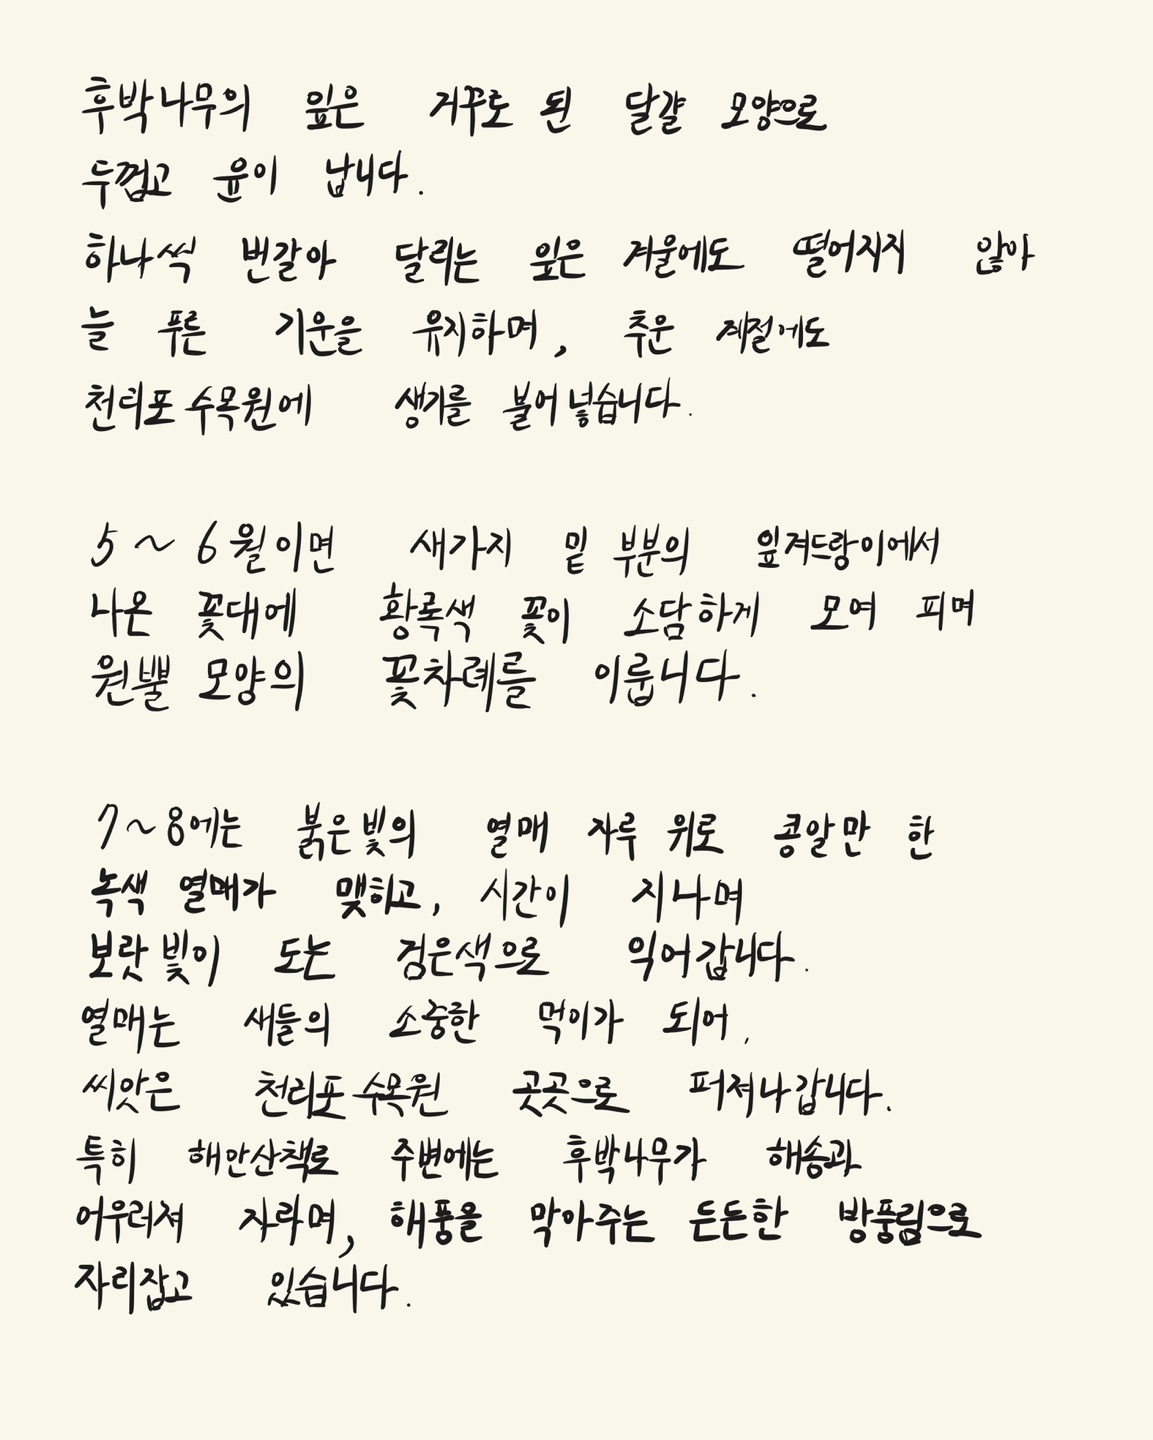 후박나무의 잎은 거꾸로 된 달걀 모양으로
두껍고 윤이 납니다.
하나씩 번갈아 달리는 잎은 겨울에도 떨어지지 않아
늘 푸른 기운을 유지하며, 추운 계절에도
천리포수목원에 생기를 불어넣습니다.
5~6월이면 새가지 밑 부분의 잎겨드랑이에서
나온 꽃대에 황록색 꽃이 소담하게 모여 피며
원뿔 모양의 꽃차례를 이룹니다.
7~8에는 붉은빛의 열매 자루 위로 콩알만 한
녹색 열매가 맺히고, 시간이 지나며
보랏빛이 도는 검은색으로 익어갑니다.
열매는 새들의 소중한 먹이가 되어,
씨앗은 천리포수목원 곳곳으로 퍼져나갑니다.
특히 해안산책로 주변에는 후박나무가 해송과
어우러져 자라며, 해풍을 막아주는 든든한 방풍림으로
자리잡고 있습니다.